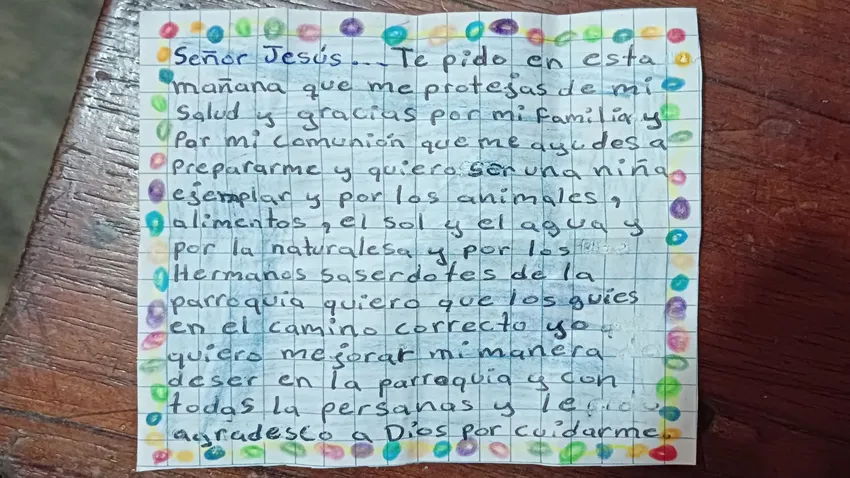 Señor Jesús... Te pido en esta
mañana que me protejas de mi
salud y gracias por mi familia y
Por mi comunión que me ayudes a
prepararme y quiero ser una niña
ejemplar y por los animales,
alimentos, el sol y el agua y
por la naturalesa y por los
Hermanos saserdotes de la
parroquia quiero que los guies
en el camino correcto yo
quiero mejorar mi manera
deser en la parroquia y con
todas la persanas y le
agradesco a Dios por cuidarme.